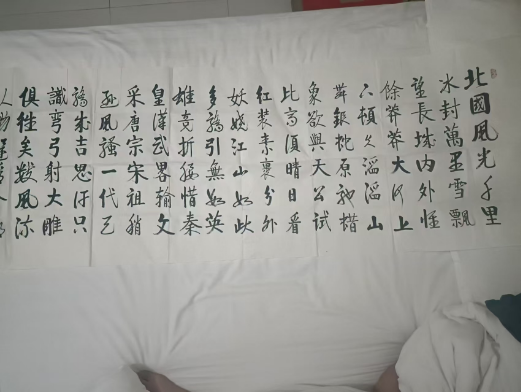 北國風光千里
冰封萬里雪飄
望長城内外惟
餘莽莽大河上
下頓失滔滔山
舞銀蛇原馳蜡
象欲與天公試
比高須晴日看
紅裝素裹分外
妖嬈江山如此
多嬌引無數英
雄競折腰惜秦
皇漢武略輸文
采唐宗宋祖稍
遜風騷一代天
驕成吉思汗只
識彎弓射大雕
俱往矣數風流
人物還看今朝